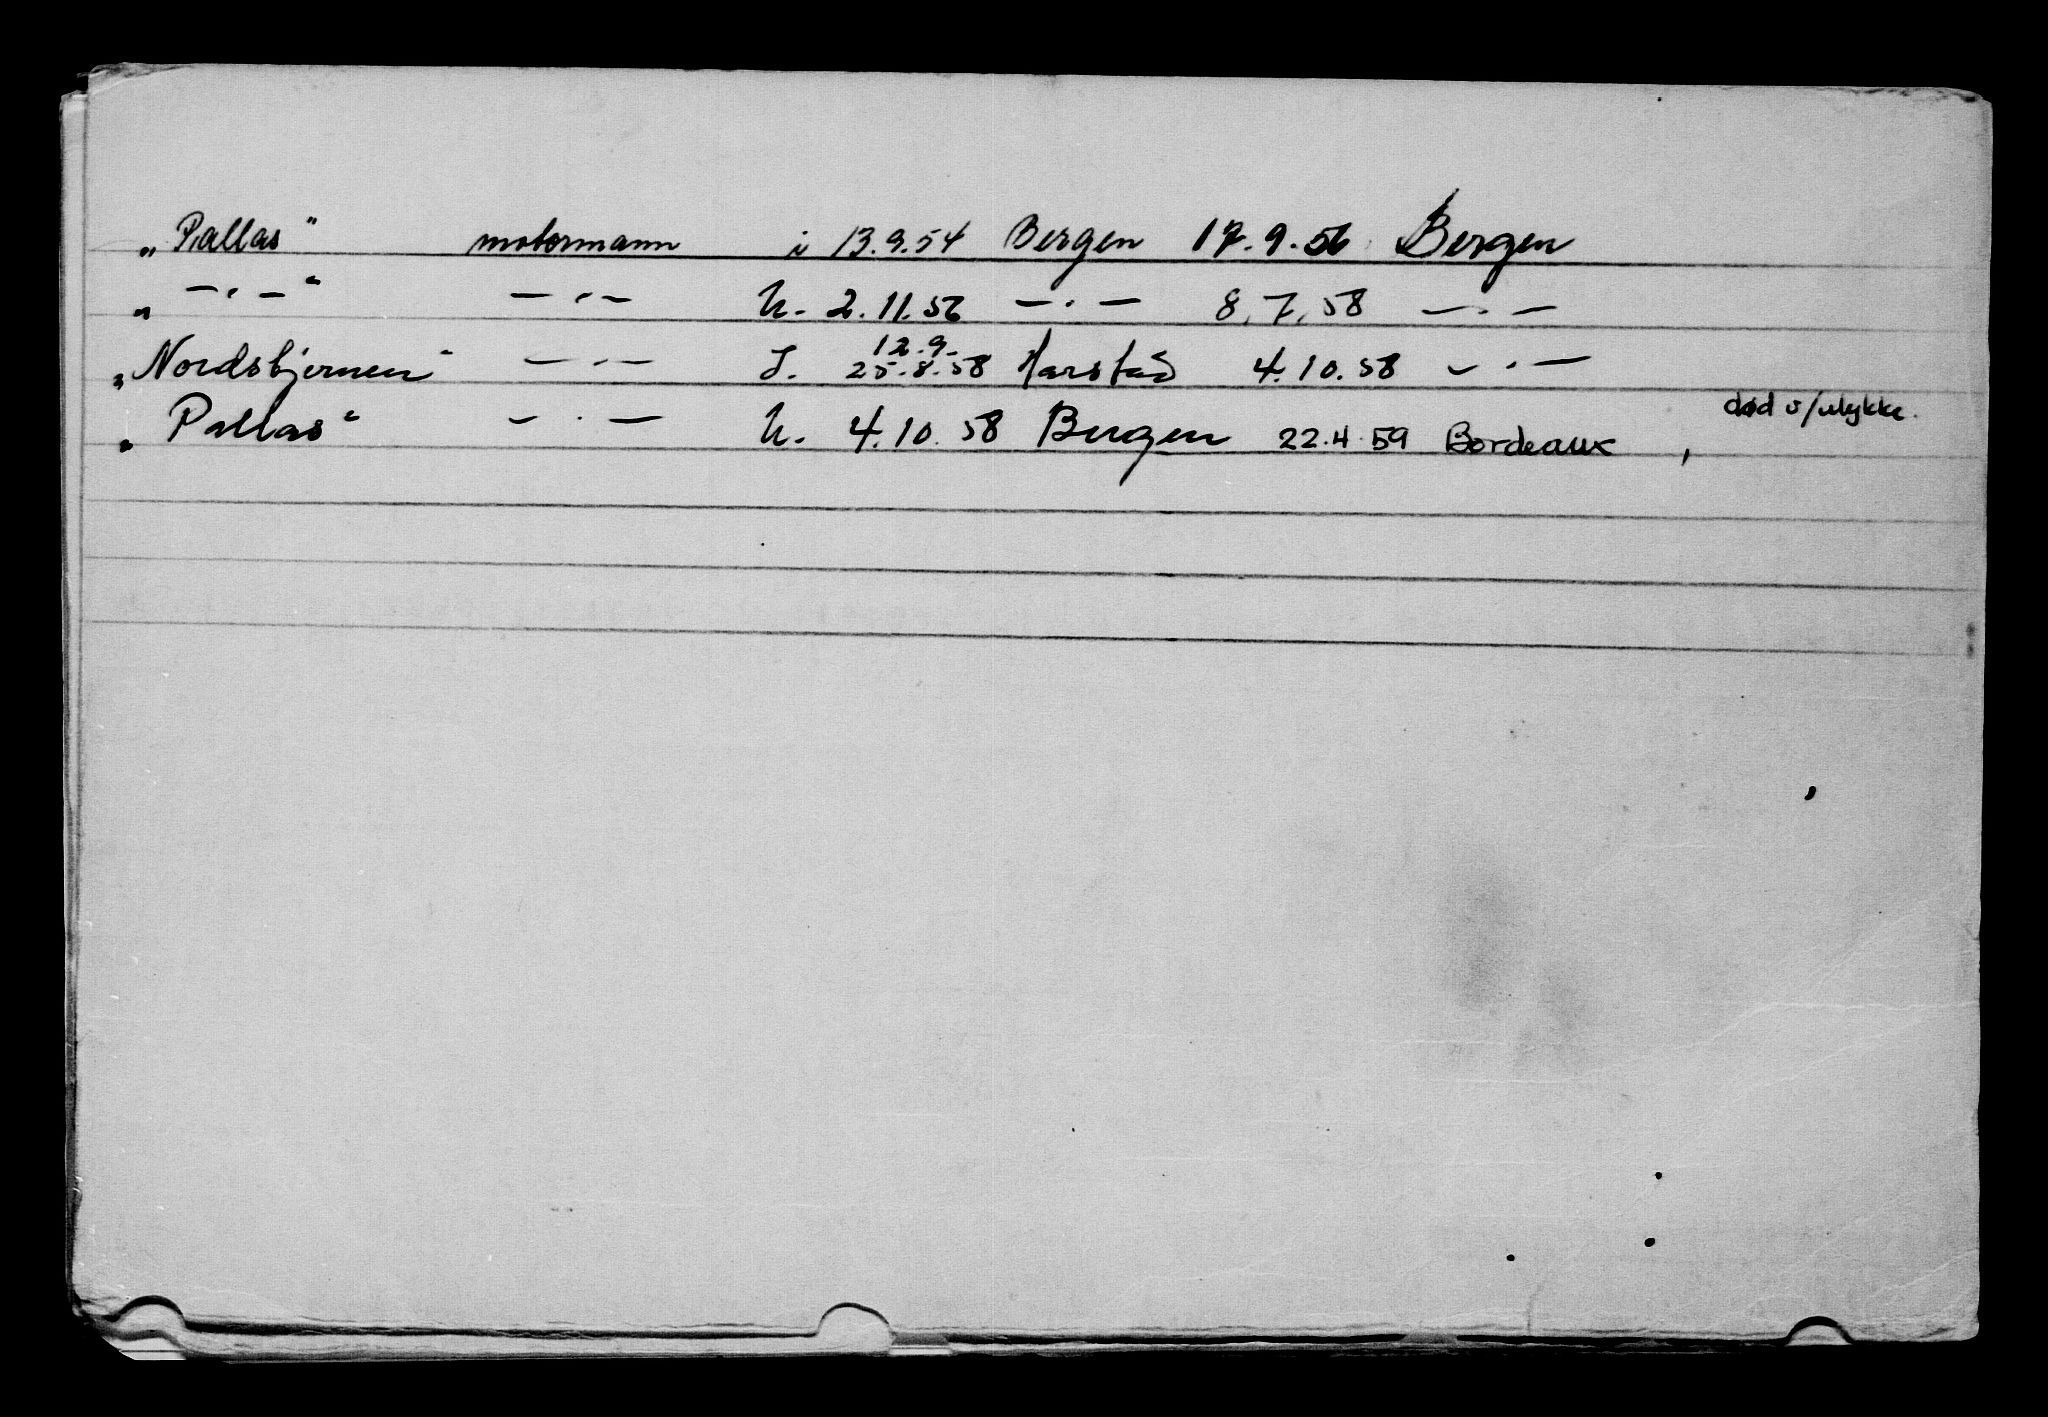 „Pallas" motormann i 13.9.54 Bergen 17.9.56 Bergen
„ — . — " — . — U. 2.11.56 — . — 8.7.58 — . —
12.9.
„Nordstjernen" — . — I. 25.8.58 Harstad 4.10.58 — . —
død v/ulykke.
„Pallas" — . — U. 4.10.58 Bergen 22.4.59 Bordeaux ,